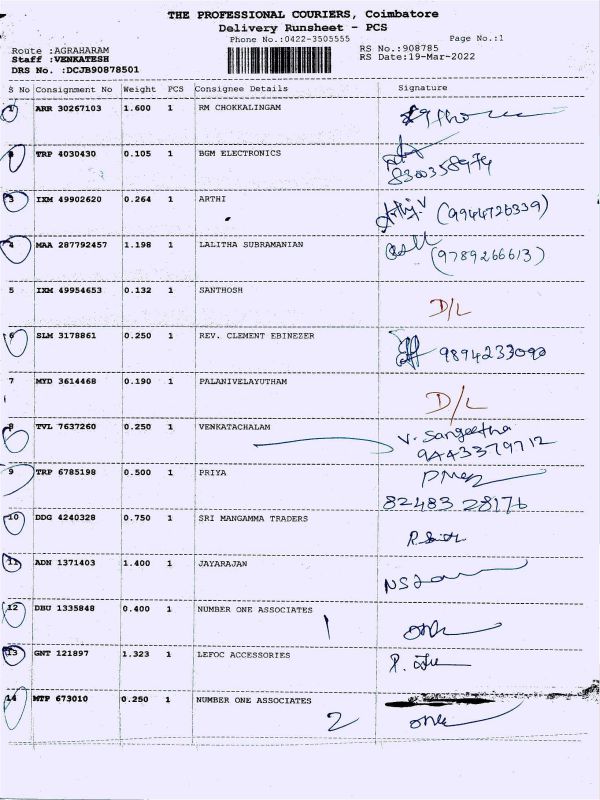 THE PROFESSIONAL COURIERS, Coimbatore
Delivery Runsheet - PCS
Phone No.:0422-3505555
Page No.:1
Route :AGRAHARAM
RS No.:908785
Staff :VENKATESH
RS Date:19-Mar-2022
DRS No. :DCJB90878501
S No Consignment No Weight PCS Consignee Details Signature
1 ARR 30267103 1.600 1 RM CHOKKALINGAM
TRP 4030430 0.105 1 BGM ELECTRONICS
8300358979
3 IXM 49902620 0.264 1 ARTHI
(9944726339)
4 MAA 287792457 1.198 1 LALITHA SUBRAMANIAN
(9789266613)
5 IXM 49954653 0.132 1 SANTHOSH
D/L
6 SLM 3178861 0.250 1 REV. CLEMENT EBINEZER
9894233090
7 MYD 3614468 0.190 1 PALANIVELAYUTHAM
D/L
8 TVL 7637260 0.250 1 VENKATACHALAM
V. Sangeetha
9443379712
9 TRP 6785198 0.500 1 PRIYA
82483 28176
10 DDG 4240328 0.750 1 SRI MANGAMMA TRADERS
11 ADN 1371403 1.400 1 JAYARAJAN
12 DBU 1335848 0.400 1 NUMBER ONE ASSOCIATES
1
13 GNT 121897 1.323 1 LEFOC ACCESSORIES
14 MTP 673010 0.250 1 NUMBER ONE ASSOCIATES
2